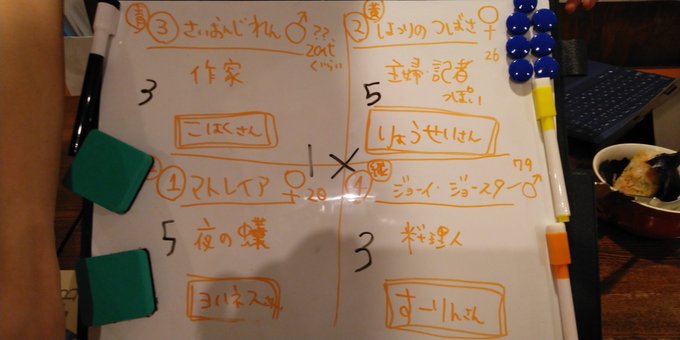 青 ③ さいおんじれん ♂ ??
20代
ぐらい
作家
3
こはくさん
② 黄 しょうりの つばさ ♀
26
主婦・記者
っぽい
5
りょうせいさん
1 ×
① マトレイア ♀ 20
夜の蝶
5
ヨハネスさん
④ 緑 ジョーイ・ジョースター ♂ 79
料理人
3
すーりんさん